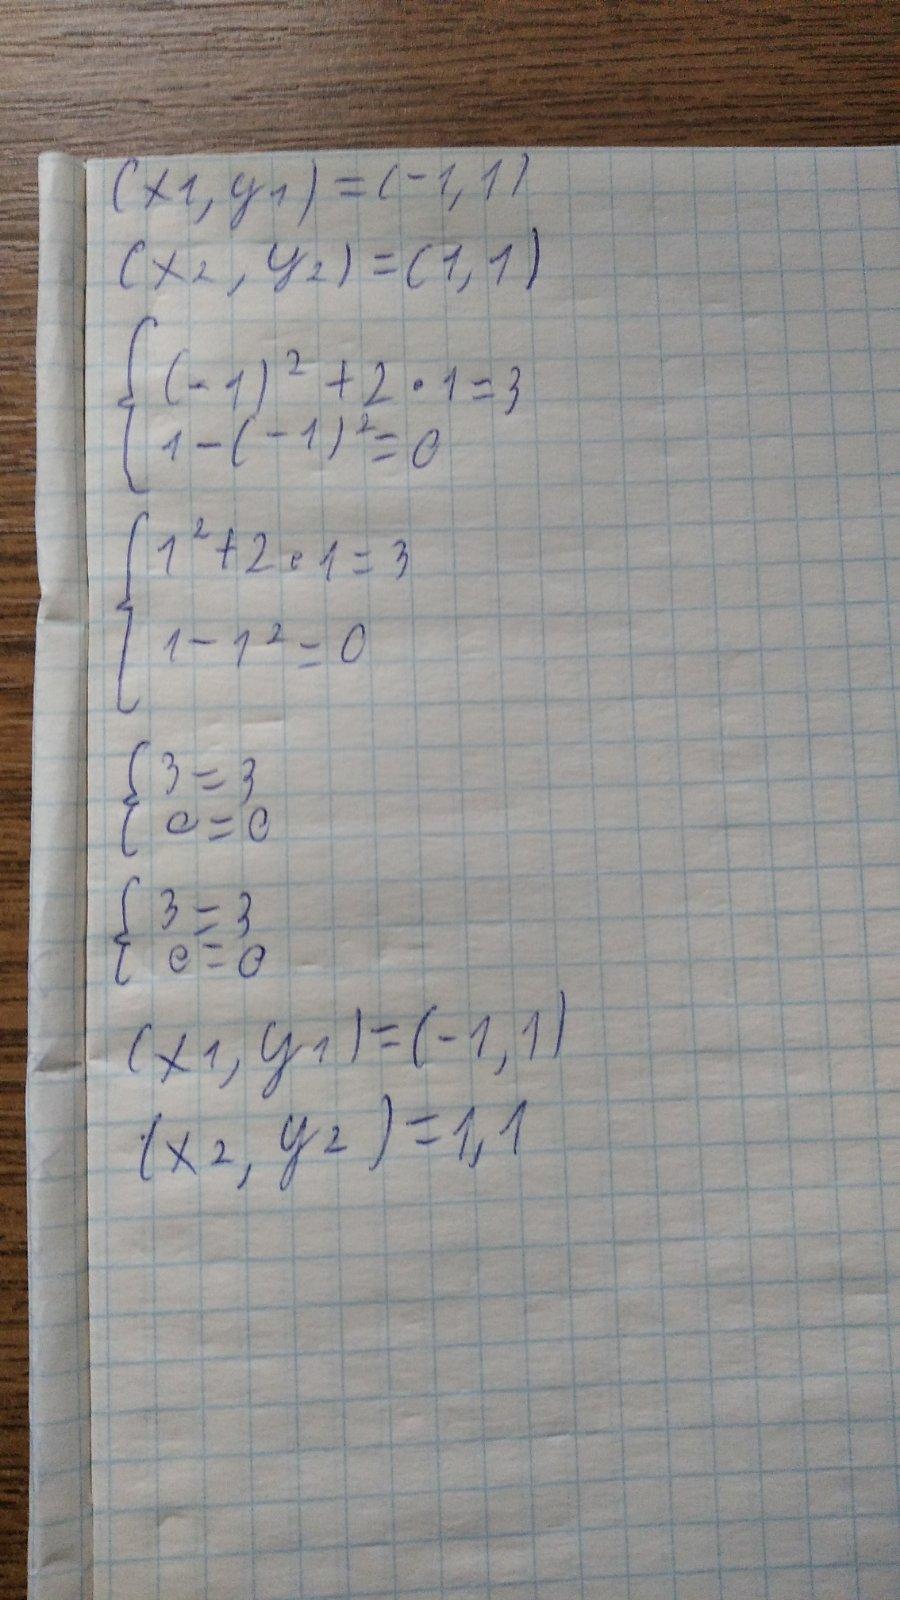 (x1, y1) = (-1, 1)
(x2, y2) = (1, 1)
{ (-1)² + 2 · 1 = 3
1 - (-1)² = 0
{ 1² + 2 · 1 = 3
1 - 1² = 0
{ 3 = 3
0 = 0
{ 3 = 3
0 = 0
(x1, y1) = (-1, 1)
(x2, y2) = 1, 1